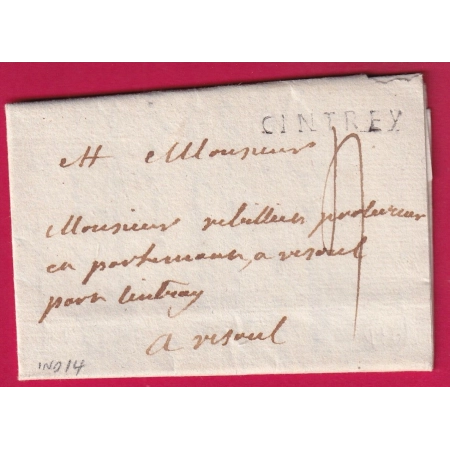 CINTREY
A Monsieur
Monsieur rebillier procureur
en parlemant, a vesoul
par Cintray
A vesoul
IND 14